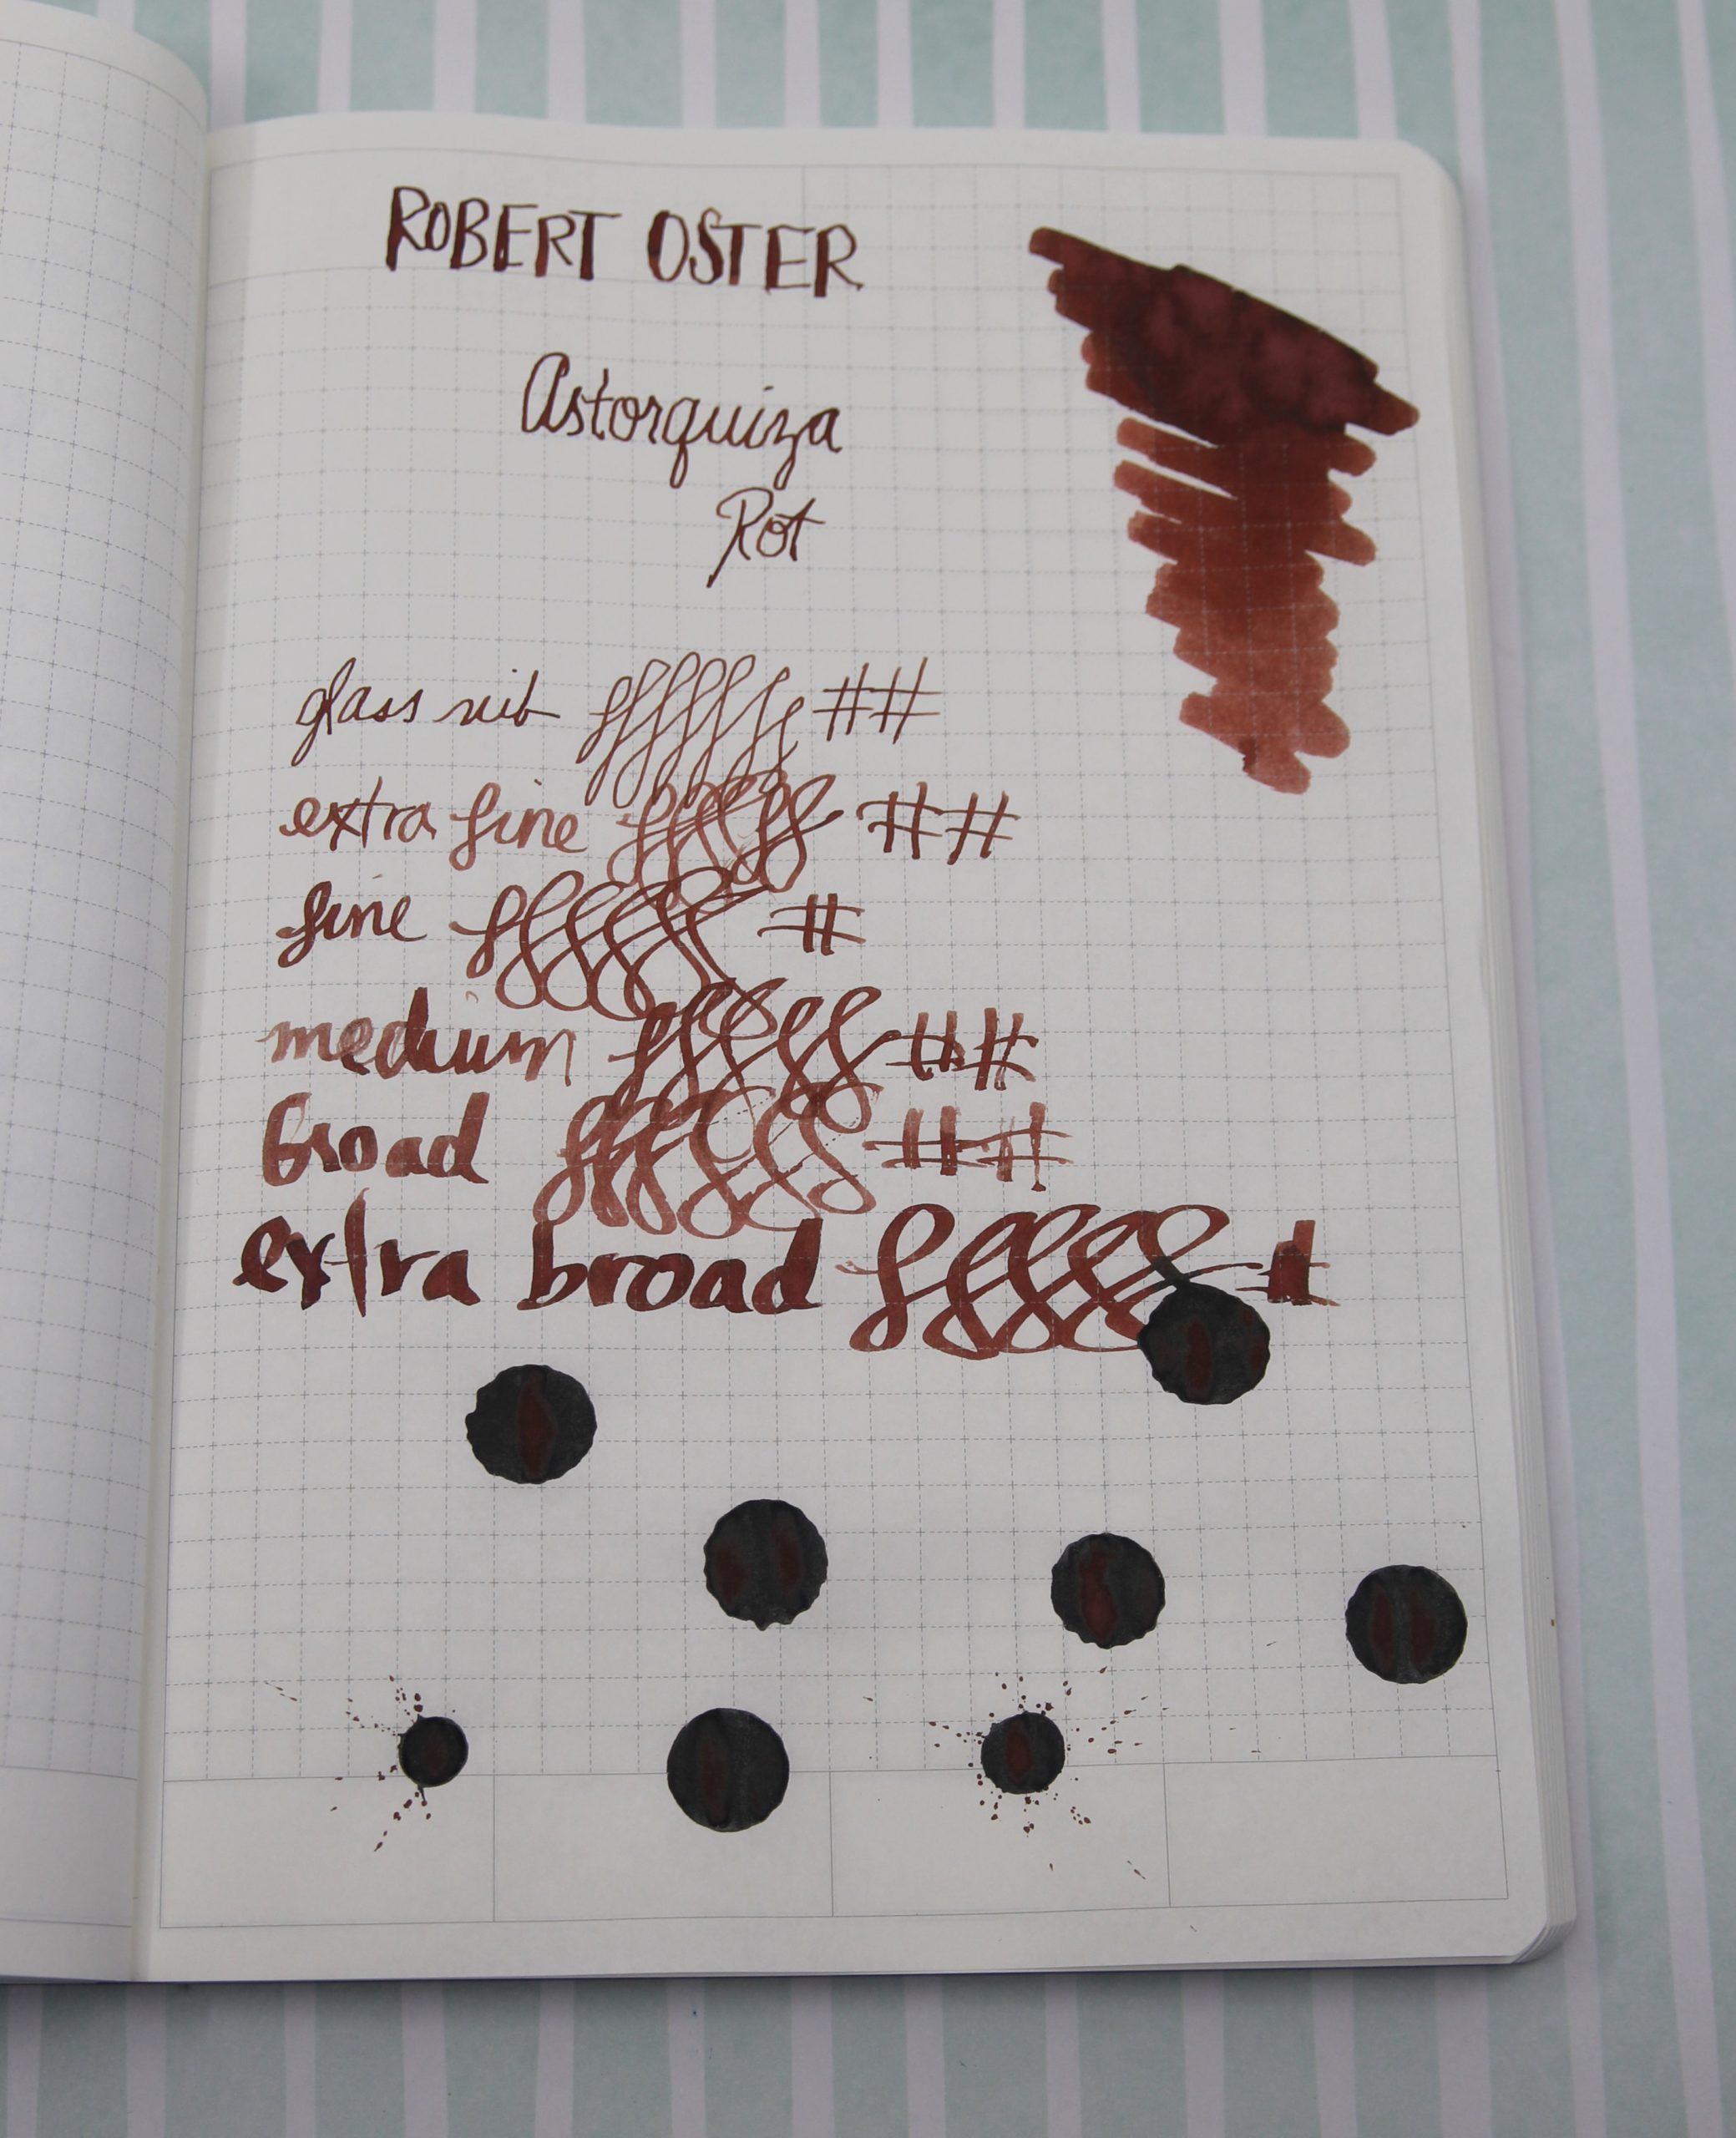 ROBERT OSTER
Astorquiza
Rot
glass nib ##
extra fine ##
fine #
medium ##
broad ##
extra broad #